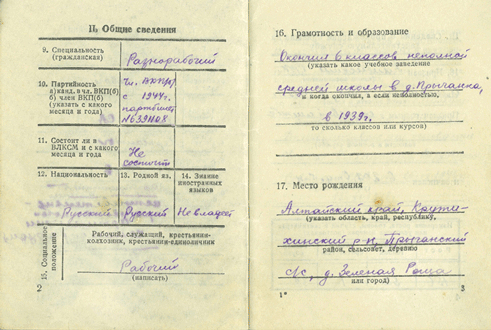 II. Общие сведения
9. Специальность
(гражданская)
Разнорабочий
10. Партийность
а) канд. в чл. ВКП(б)
б) член ВКП(б)
(указать с какого
месяца и года)
Чл. ВКП(б)
с 1944г.
партбилет
11. Состоит ли в
ВЛКСМ и с какого
месяца и года
Не
состоит
12. Национальность
13. Родной яз.
14. Знание
иностранных
языков
Русский
Русский
Не владеет
15. Социальное
положение
Рабочий, служащий, крестьянин-
колхозник, крестьянин-единоличник
Рабочий
(написать)
2
16. Грамотность и образование
Окончил 6 классов неполной
(указать какое учебное заведение
средней школы в д. Прыганка,
и когда окончил, а если неполностью,
в 1939г.
то сколько классов или курсов)
17. Место рождения
Алтайский край, Крути-
(указать область, край, республику,
хинский р-н, Прыганский
район, сельсовет, деревню
с/с, д. Зеленая Роща
или город)
1*
3